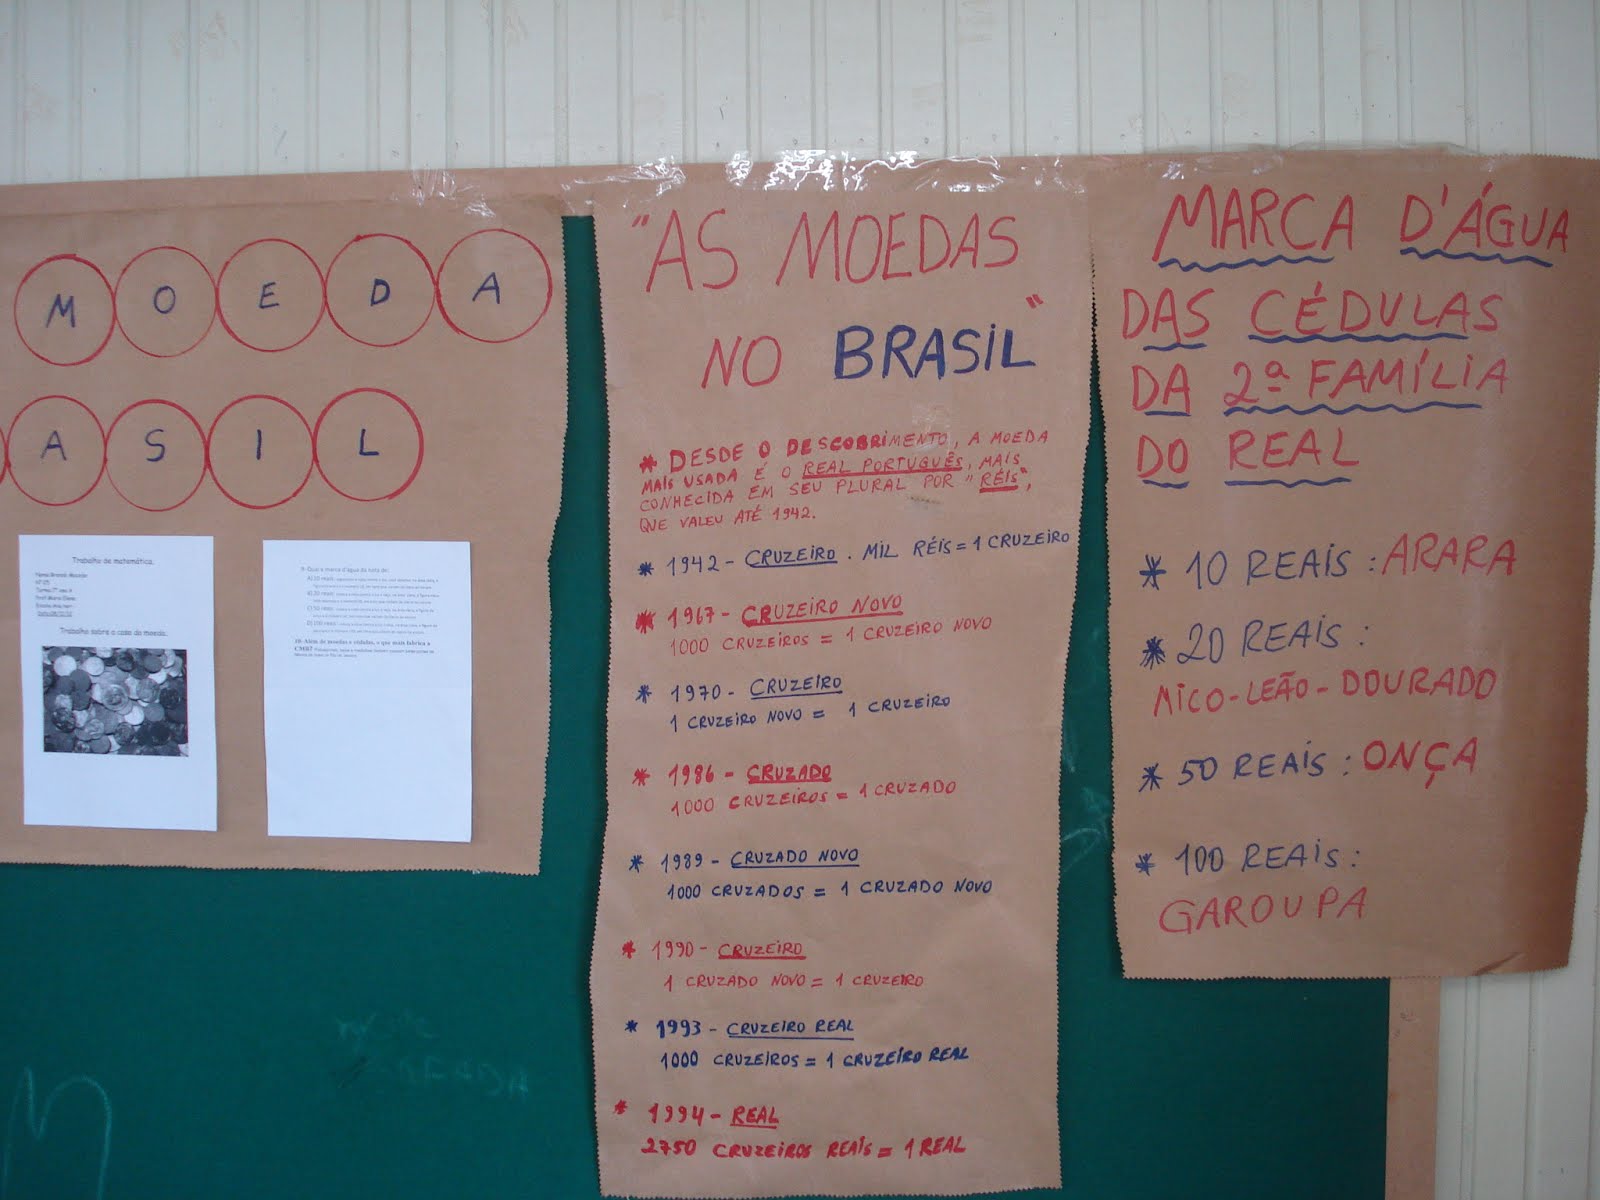 MOEDA
ASIL
Trabalho de matemática.
Trabalho sobre a casa da moeda.
"AS MOEDAS
NO BRASIL"
* DESDE O DESCOBRIMENTO, A MOEDA
MAIS USADA É O REAL PORTUGUÊS, MAIS
CONHECIDA EM SEU PLURAL POR "RÉIS",
QUE VALEU ATÉ 1942.
* 1942 - CRUZEIRO. MIL RÉIS = 1 CRUZEIRO
* 1967 - CRUZEIRO NOVO
1000 CRUZEIROS = 1 CRUZEIRO NOVO
* 1970 - CRUZEIRO
1 CRUZEIRO NOVO = 1 CRUZEIRO
* 1986 - CRUZADO
1000 CRUZEIROS = 1 CRUZADO
* 1989 - CRUZADO NOVO
1000 CRUZADOS = 1 CRUZADO NOVO
* 1990 - CRUZEIRO
1 CRUZADO NOVO = 1 CRUZEIRO
* 1993 - CRUZEIRO REAL
1000 CRUZEIROS = 1 CRUZEIRO REAL
* 1994 - REAL
2750 CRUZEIROS REAIS = 1 REAL
MARCA D'ÁGUA
DAS CÉDULAS
DA 2ª FAMÍLIA
DO REAL
* 10 REAIS : ARARA
* 20 REAIS :
MICO-LEÃO-DOURADO
* 50 REAIS : ONÇA
* 100 REAIS :
GAROUPA